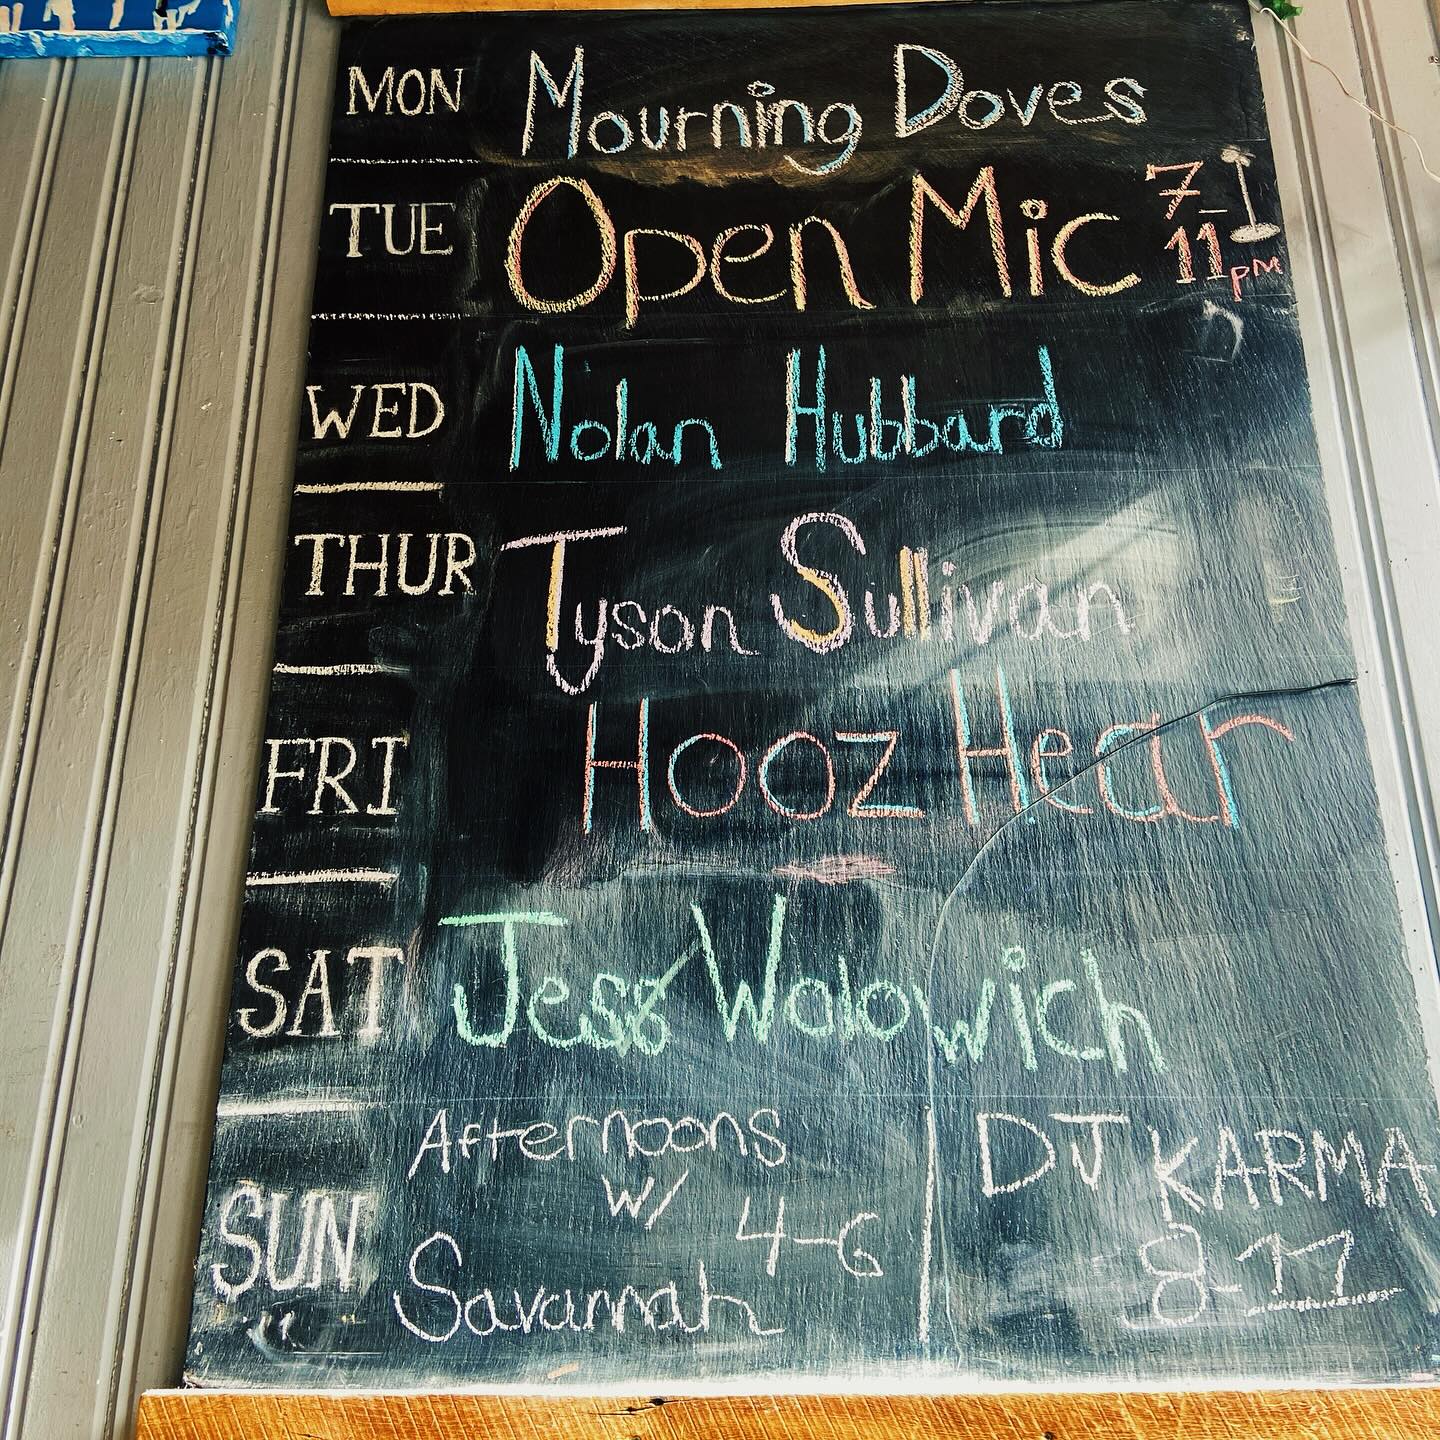 MON Mourning Doves
TUE Open Mic 7-
11 PM
WED Nolan Hubbard
THUR Tyson Sullivan
FRI Hooz Hear
SAT Jess Wolowich
SUN Afternoons
w/ 4-6
Savannah
DJ KARMA
8-11